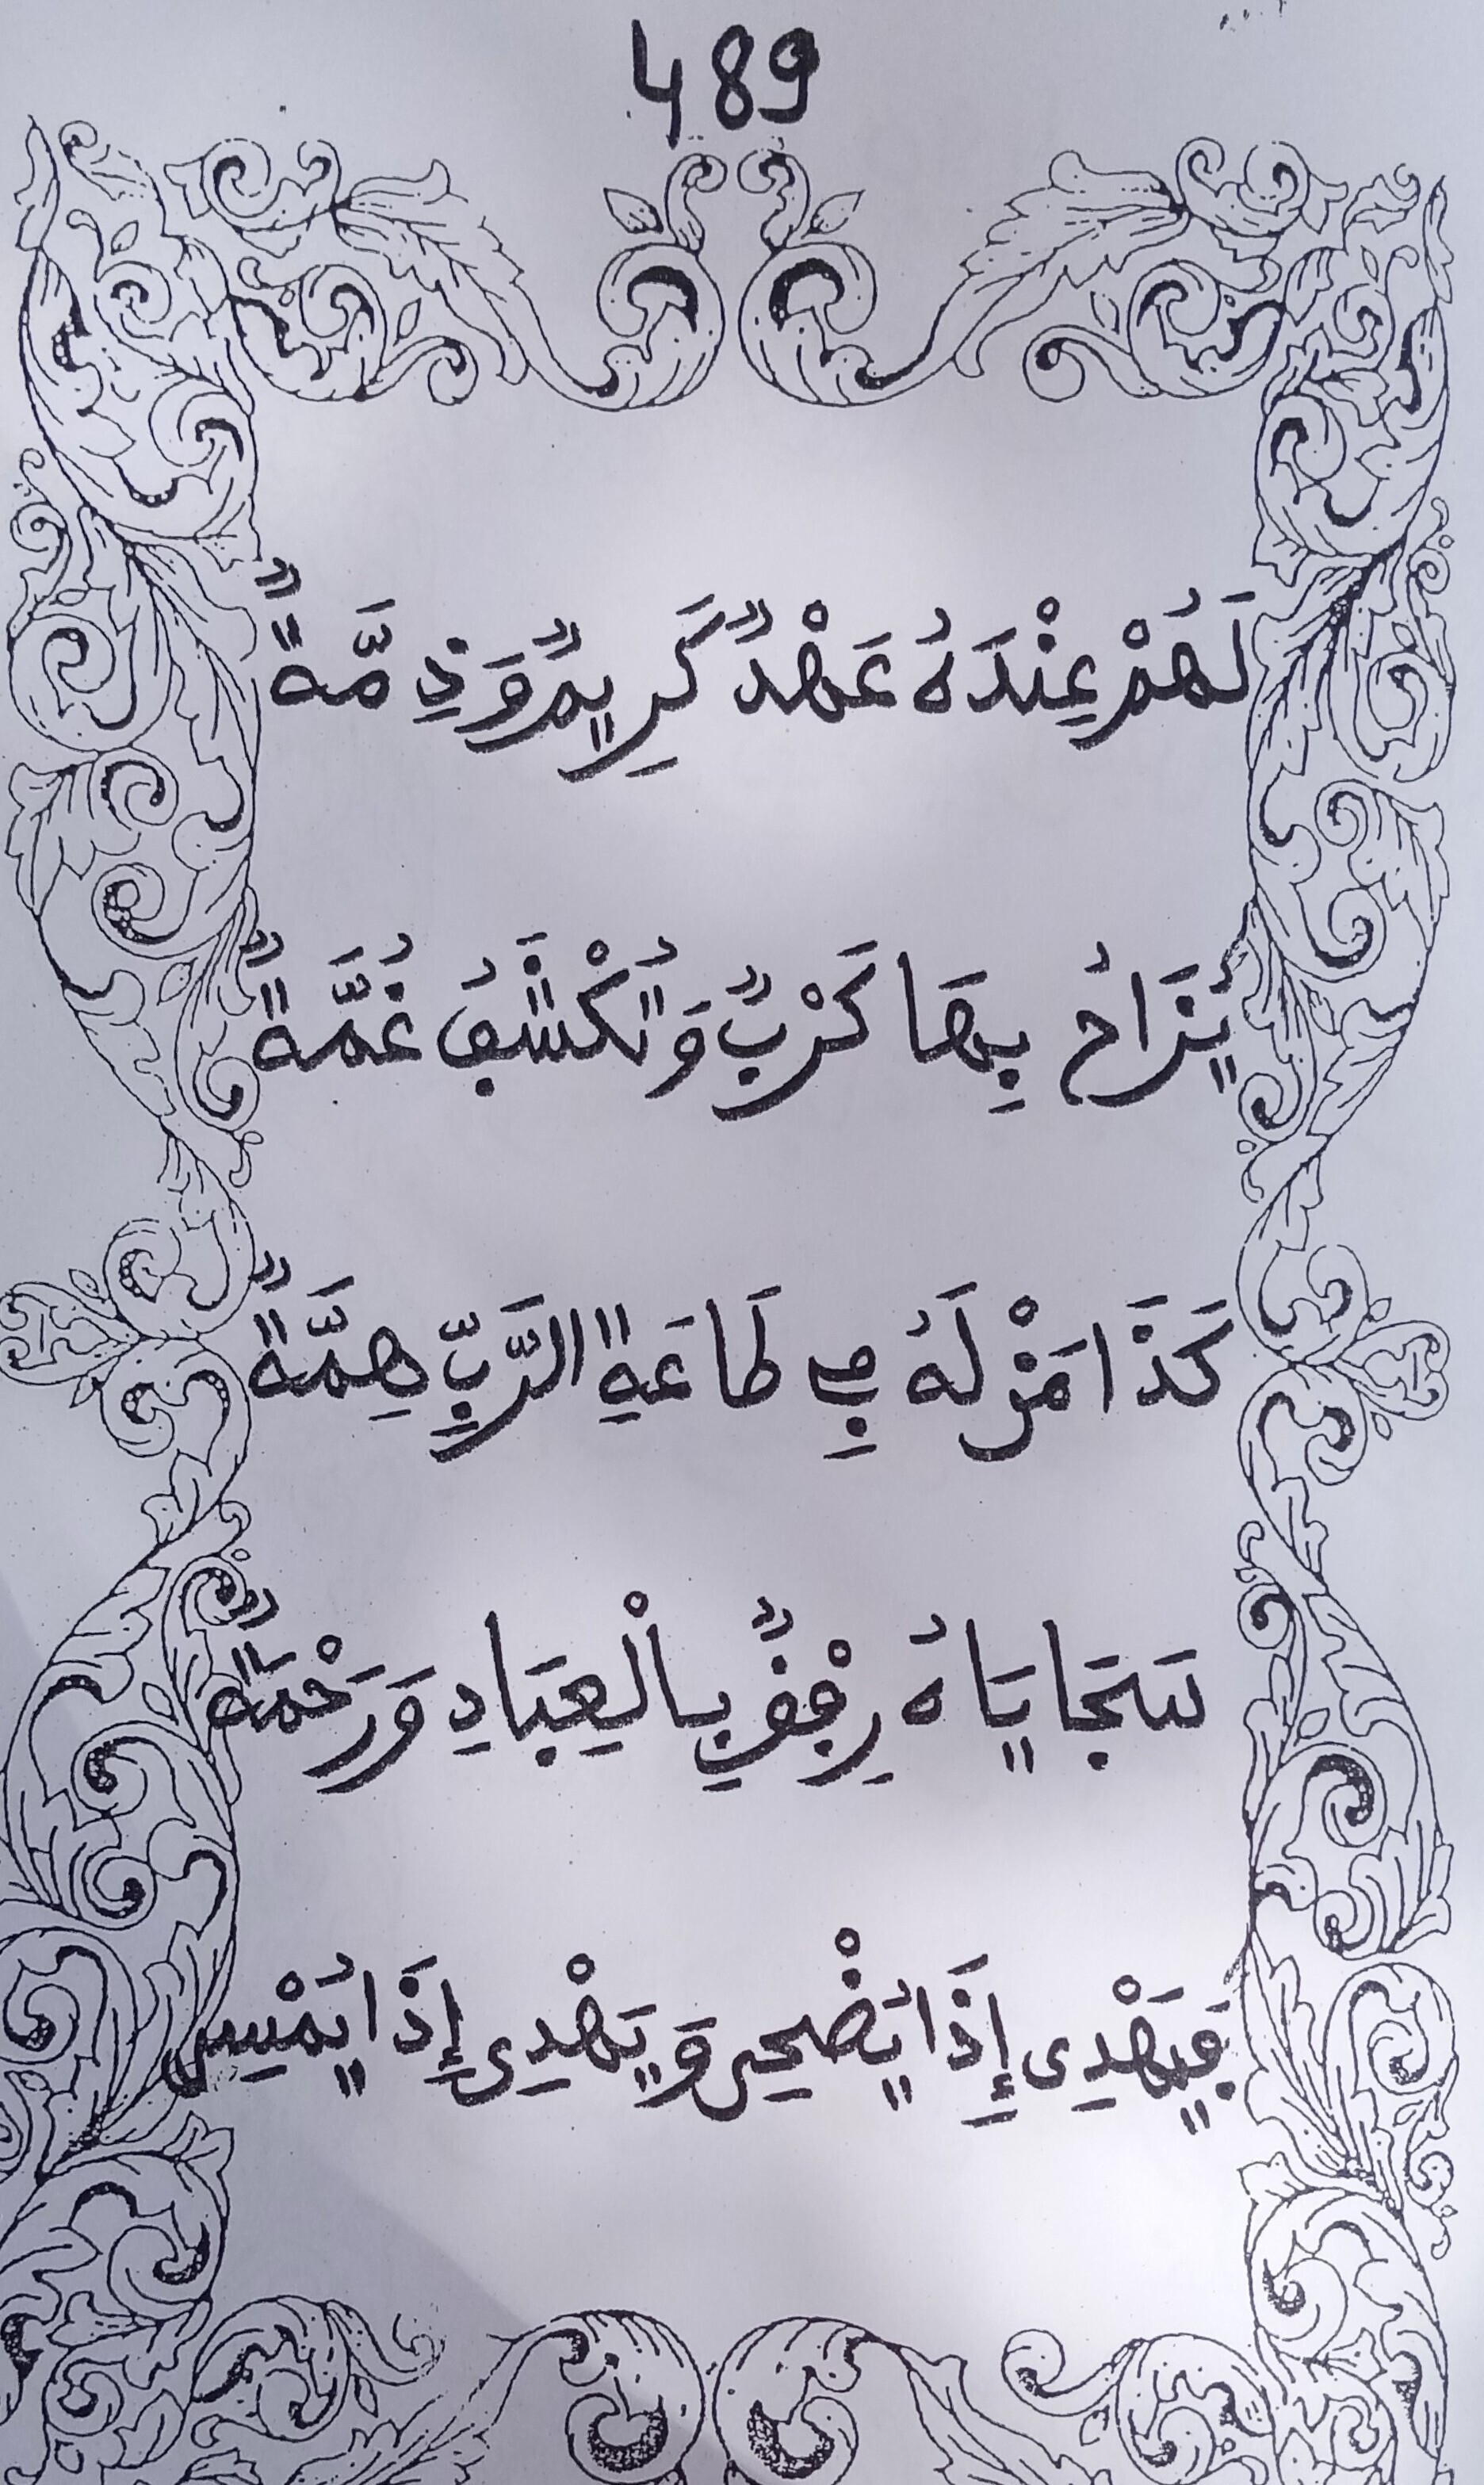 489
لَهُمْ عِنْدَهُ عَهْدٌ كَرِيمٌ وَذِمَّةٌ
يُزَاحُ بِهَا كَرْبٌ وَتُكْشَفُ غُمَّةٌ
كَذَا مَنْ لَهُ فِي طَاعَةِ الرَّبِّ هِمَّةٌ
سَجَايَاهُ رِفْقٌ بِالْعِبَادِ وَرَحْمَةٌ
فَيَهْدِى إِذَا يُضْحِى وَيَهْدِى إِذَا يُمْسِى